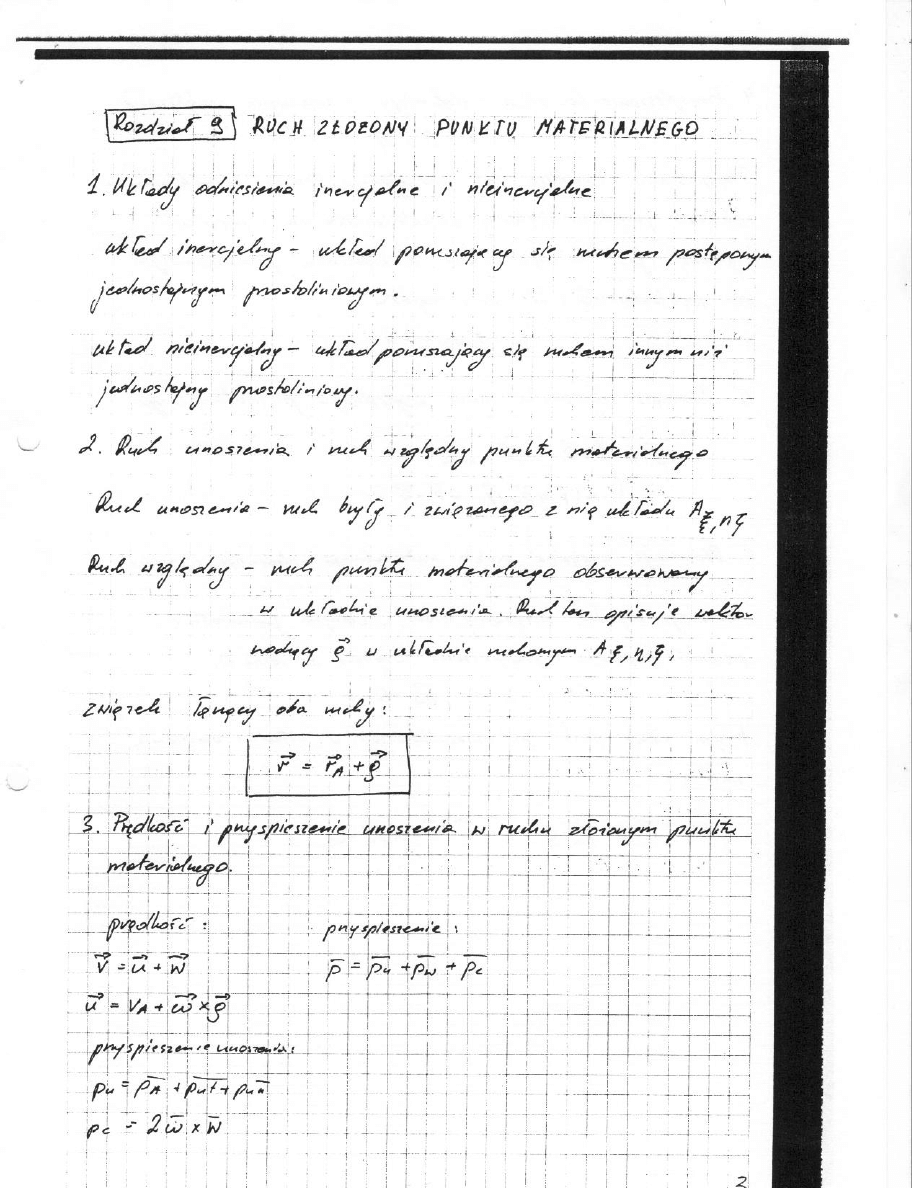 Rozdział 9 RUCH ZŁOŻONY PUNKTU MATERIALNEGO
1. Układy odniesienia inercjalne i nieinercjalne
układ inercjalny – układ poruszający się ruchem postępowym
jednostajnym prostoliniowym.
układ nieinercjalny – układ poruszający się ruchem innym niż
jednostajny prostoliniowy.
2. Ruch unoszenia i ruch względny punktu materialnego
Ruch unoszenia – ruch bryły i związanego z nią układu Aξ,η,ζ
Ruch względny – ruch punktu materialnego obserwowany
w układzie unoszenia. Ruch ten opisuje wektor
wodzący ρ⃗ w układzie ruchomym Aξ,η,ζ,
związek łączący oba ruchy:
r⃗ = r⃗A + ρ⃗
3. Prędkość i przyspieszenie unoszenia w ruchu złożonym punktu
materialnego.
prędkość: przyspieszenie:
v⃗ = u⃗ + w⃗ p̅ = p̅u + p̅w + p̅c
u⃗ = vA + ω⃗ × ρ⃗
przyspieszenie unoszenia:
pu = p̅A + p̅ut + p̅un
pc = 2ω̅ × w̅
2